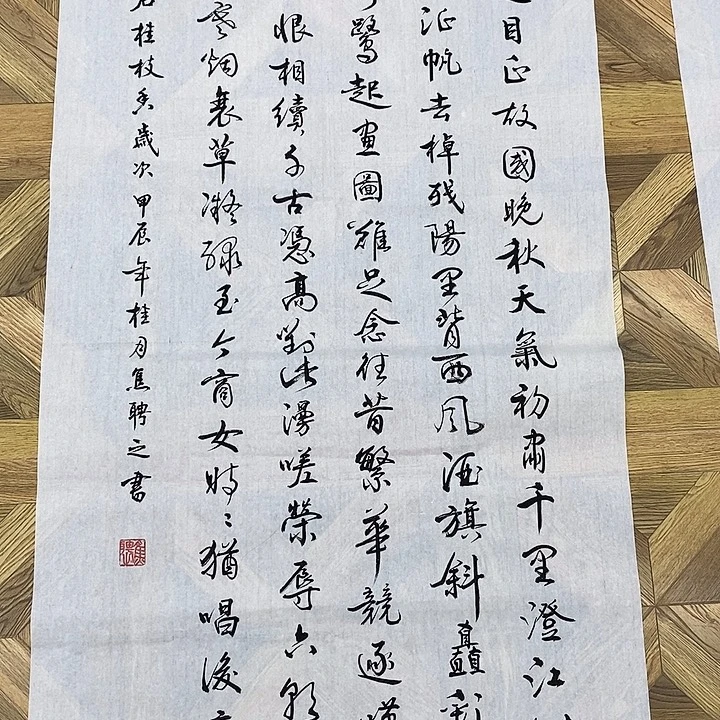 目正故國晚秋天氣初肅千里澄江
征帆去棹残陽里背西风酒旗斜矗彩
鷺起畫圖難足念往昔繁華競逐嘆
恨相續千古憑高對此漫嗟榮辱六朝
寒烟衰草凝綠至今商女時〻猶唱後
石桂枝香歲次甲辰年桂月焦聘之書